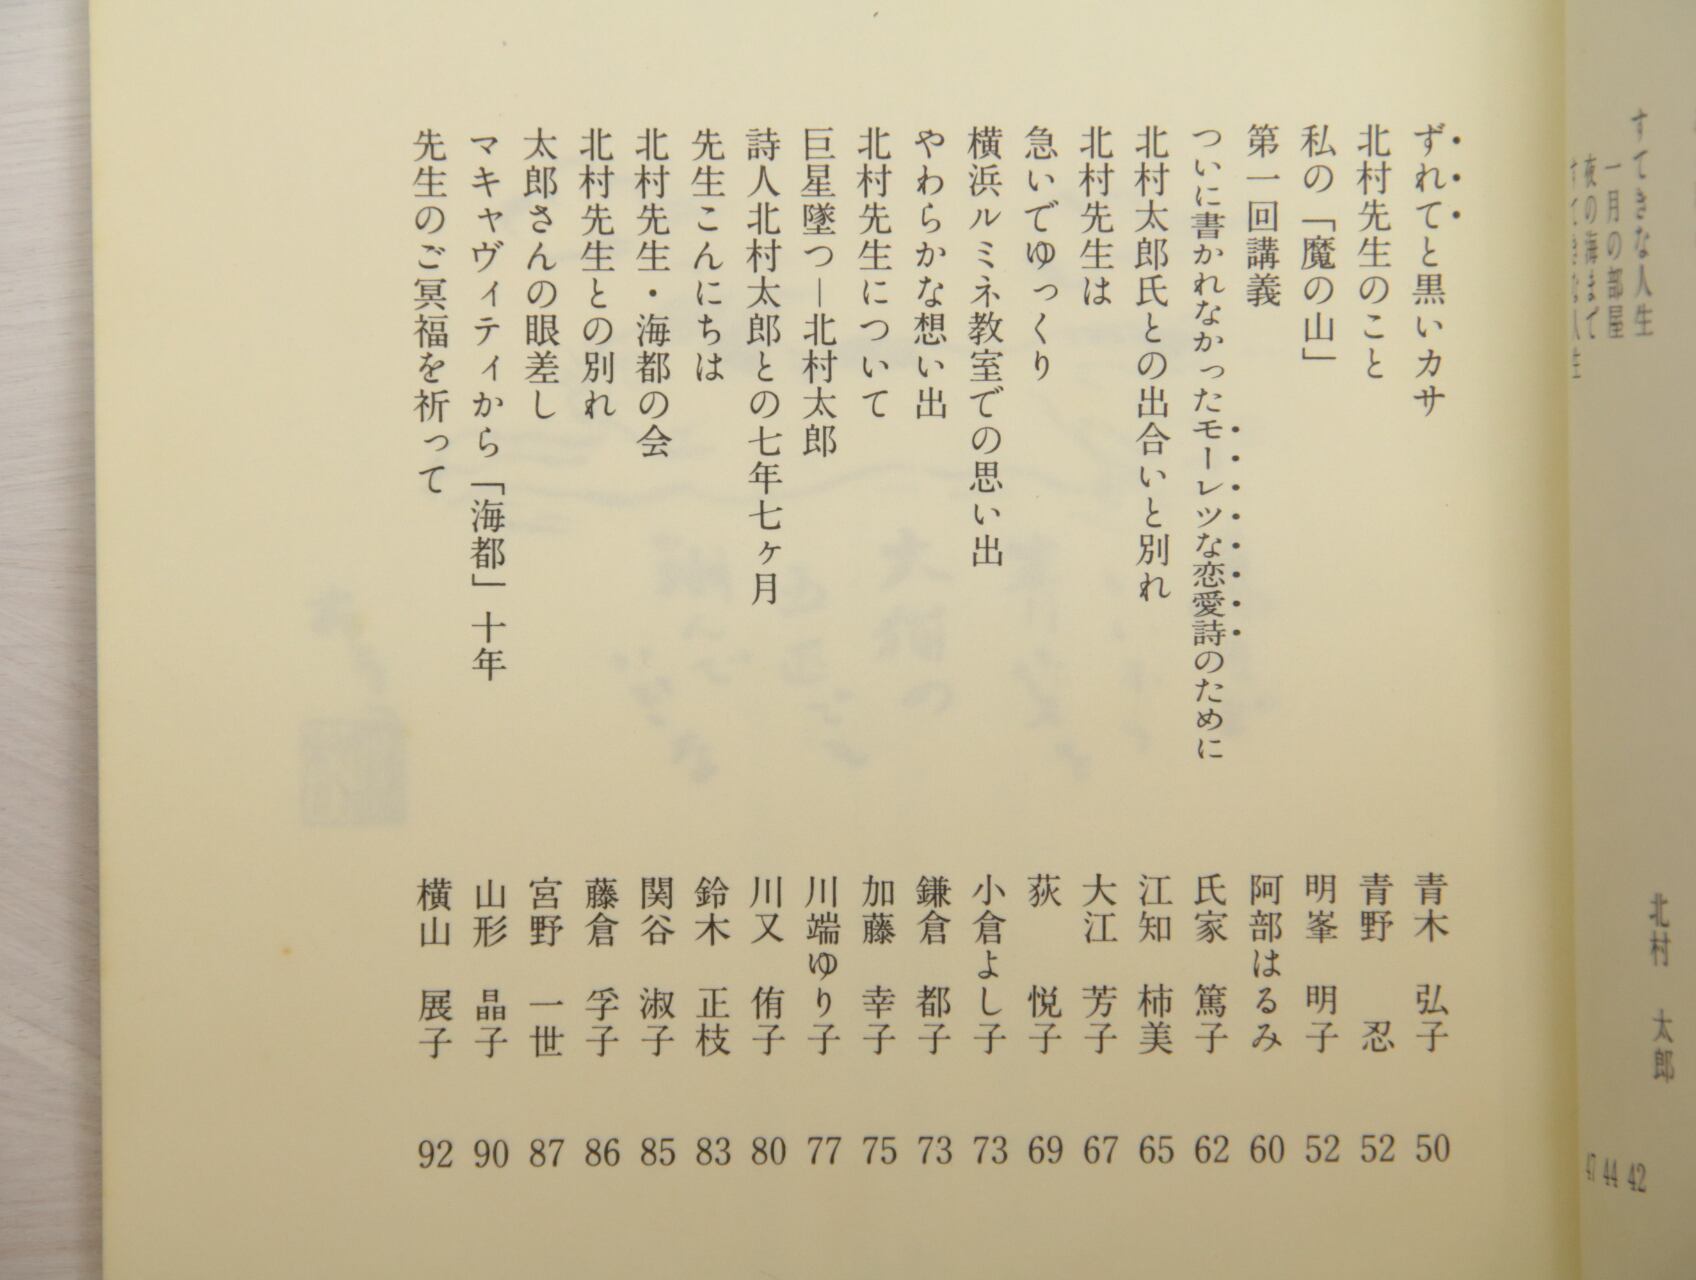 すてきな人生
一月の部屋
夜の海まで
すてきな人生
北村 太郎
42
44
47
ずれてと黒いカサ 青木 弘子 50
北村先生のこと 青野 忍 52
私の「魔の山」 明峯 明子 52
第一回講義 阿部はるみ 60
ついに書かれなかったモーレツな恋愛詩のために 氏家 篤子 62
北村太郎氏との出合いと別れ 江知 柿美 65
北村先生は 大江 芳子 67
急いでゆっくり 荻 悦子 69
横浜ルミネ教室での思い出 小倉よし子 73
やわらかな想い出 鎌倉 都子 73
北村先生について 加藤 幸子 75
巨星墜つ―北村太郎 川端ゆり子 77
詩人北村太郎との七年七ヶ月 川又 侑子 80
先生こんにちは 鈴木 正枝 83
北村先生・海都の会 関谷 淑子 85
北村先生との別れ 藤倉 孚子 86
太郎さんの眼差し 宮野 一世 87
マキャヴィティから「海都」十年 山形 晶子 90
先生のご冥福を祈って 横山 展子 92